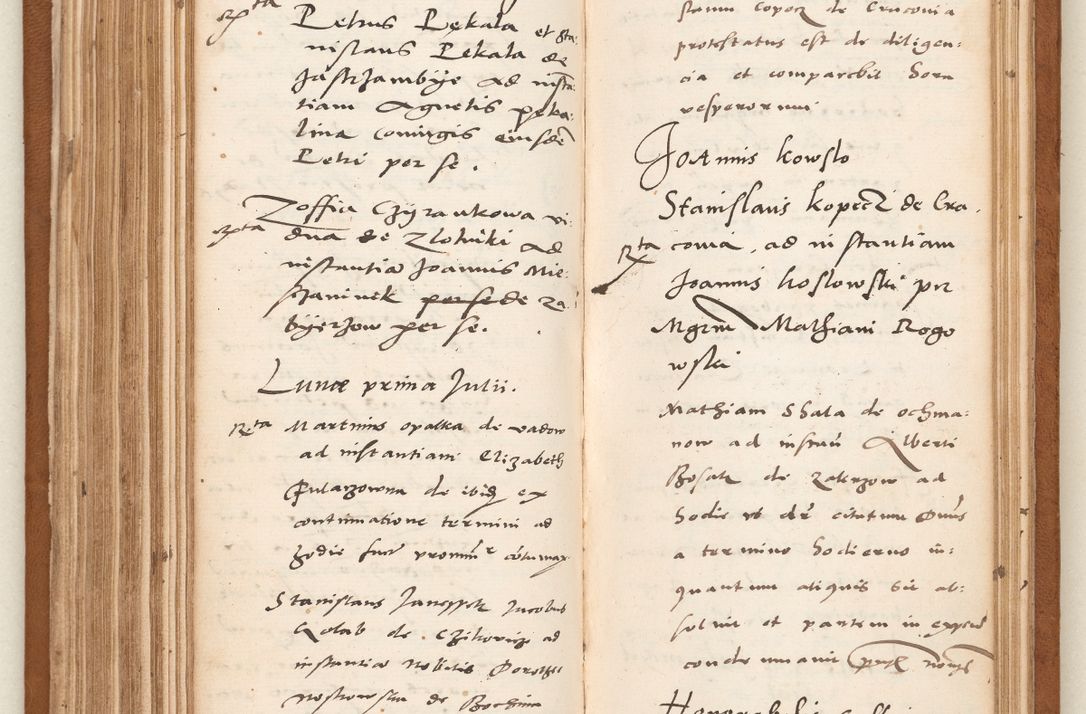 Petrus Pękala et Sta:
nislaus Pekala de
Jastrzambye ad insta:
tiam Agnetis peka:
lina coniugis eiusde
Petri per se.
Zoffia Czyrankowa vi:
dua de Zlotniki ad
instantia Joannis Mie:
szaninek per se de Za:
byerzow per se.
Lunæ prima Julii.
Rta Martinus opalka de vadow
ad instantiam Elizabeth
de ibid ex
continuatione termini ad
hodie
Stanislaus Jacobus
Golab de ad
instantia Nobilis Dorothei
de Bochnia
stanum Copecz de Cracovia
protestatus est de diligen:
cia et comparebit hora
vesperorum
Joannis kowslo
Stanislaus kopecz de Cra
Rta covia, ad instantiam
Joannis koslowski per
Mgrm Mathiam Rogo
wski
Mathiam Skala de ochma:
now ad instan Alberti
Bosak de Zakrzow ad
hodie vt der citatum Duus
a termino hodierno in:
quantum aliquis sit ab:
soluit et partem in expens
condemnauit